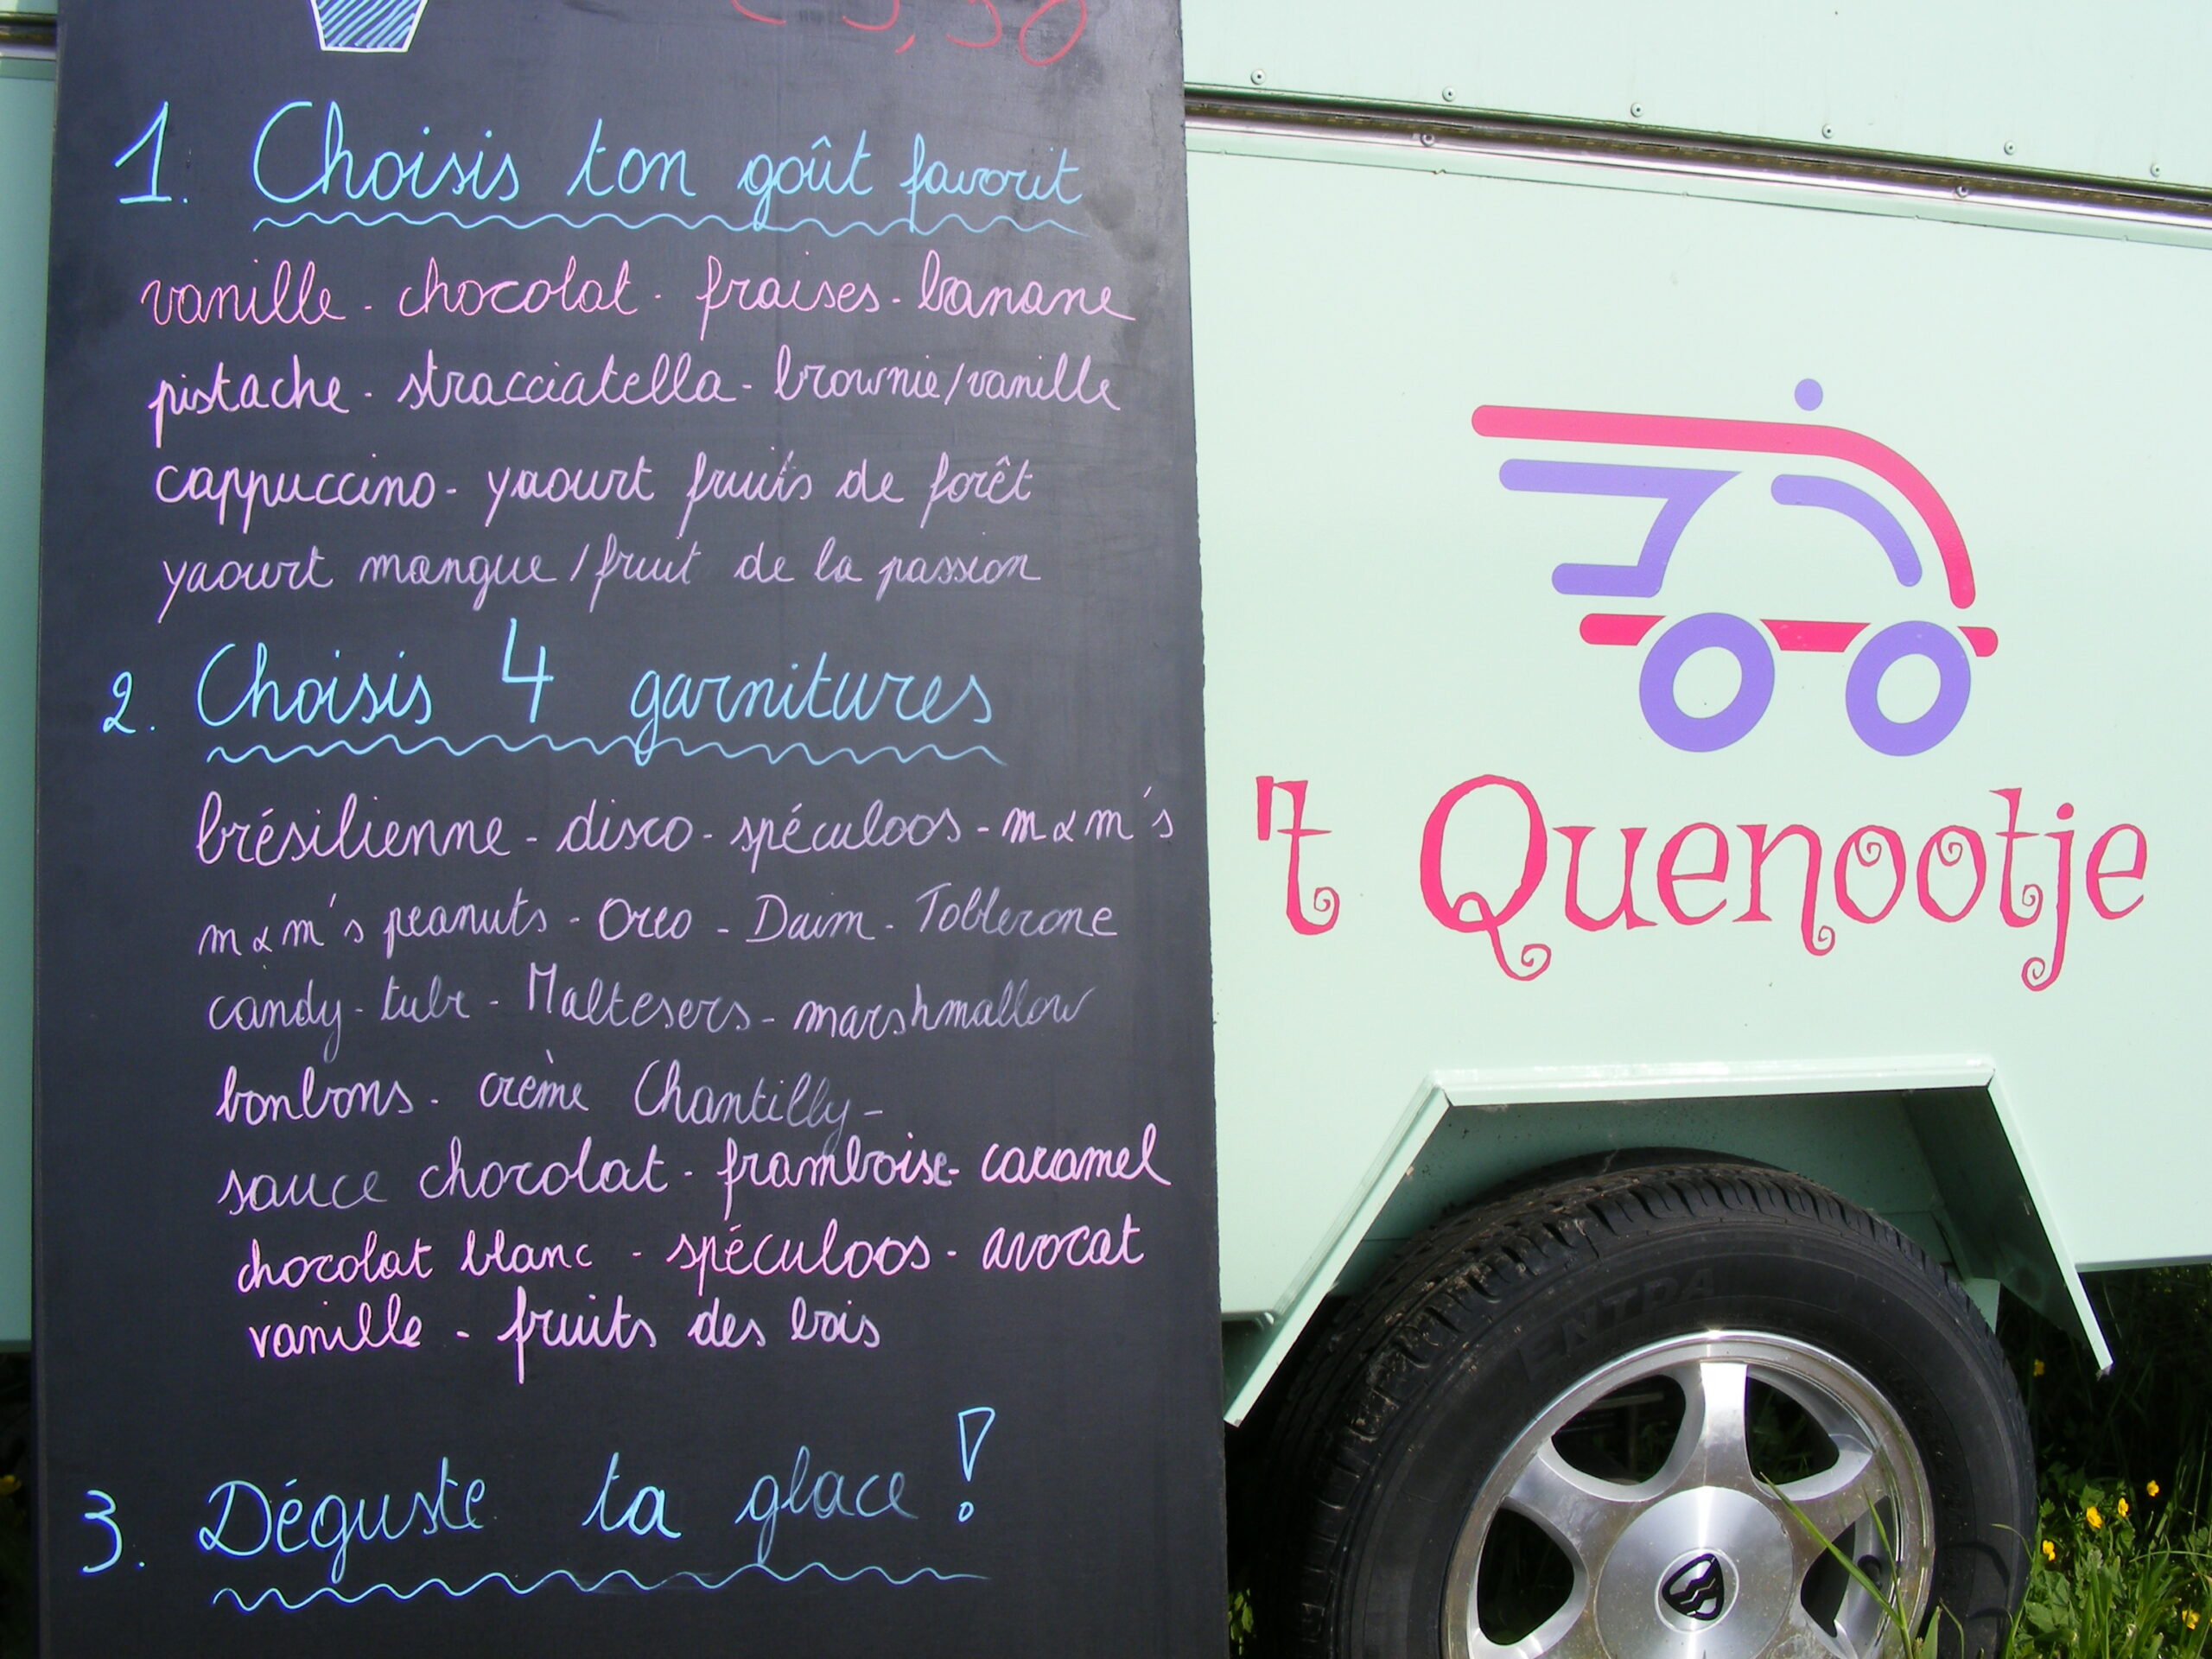 1. Choisis ton goût favorit
vanille - chocolat - fraises - banane
pistache - stracciatella - brownie/vanille
cappuccino - yaourt fruits de forêt
yaourt mangue / fruit de la passion
2. Choisis 4 garnitures
brésilienne - disco - spéculoos - m&m's
m&m's peanuts - Oreo - Daim - Toblerone
candy-tube - Maltesers - marshmallow
bonbons - crème Chantilly -
sauce chocolat - framboise - caramel
chocolat blanc - spéculoos - avocat
vanille - fruits des bois
3. Déguste ta glace !
't Quenootje